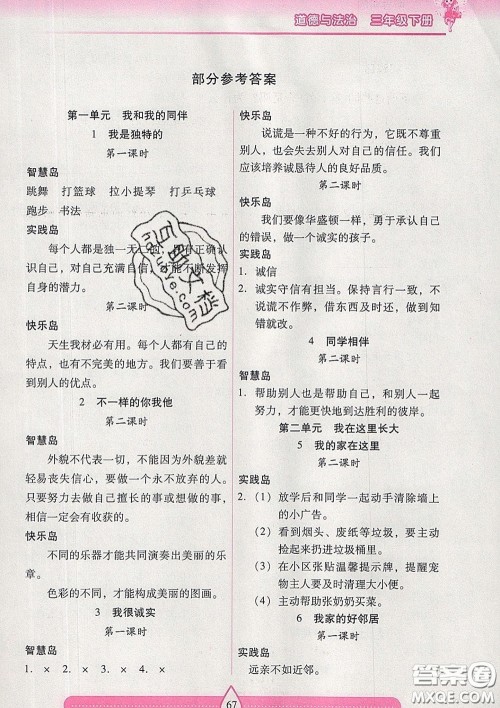 道德与法治 三年级下册
部分参考答案
第一单元 我和我的同伴
1 我是独特的
第一课时
智慧岛
跳舞 打篮球 拉小提琴 打乒乓球
跑步 书法
实践岛
每个人都是独一无二的，只有正确认
识自己，对自己充满自信，才能不断发挥
自身的潜力。
第二课时
快乐岛
天生我材必有用。每个人都有自己的
特点，也有不完美的地方。我们要善于看
到别人的优点。
2 不一样的你我他
第二课时
智慧岛
外貌不代表一切，不能因为外貌差就
轻易丧失信心，要做一个永不放弃的人。
只要努力去做自己擅长的事或想做的事，
相信一定会有收获的。
快乐岛
不同的乐器才能共同演奏出美丽的乐
章。
色彩的不同，才能构成美丽的图画。
3 我很诚实
第一课时
智慧岛
1. × 2. × 3. × 4. ×
快乐岛
说谎是一种不好的行为，它既不尊重
别人，也会失去别人对自己的信任。我们
应该培养诚恳待人的良好品质。
第二课时
快乐岛
我们要像华盛顿一样，勇于承认自己
的错误，做一个诚实的孩子。
实践岛
1. 诚信
2. 诚实守信有担当。保持言行一致，不
说谎不作弊，借东西及时还，做到知
错就改。
4 同学相伴
第二课时
智慧岛
1. 帮助别人也是帮助自己，和别人一起
努力，才能更快地到达胜利的彼岸。
第二单元 我在这里长大
5 我的家在这里
第二课时
实践岛
2. （1）放学后和同学一起动手清除墙上
的小广告。
（2）看到烟头、废纸等垃圾，要主动
捡起来扔进垃圾桶里。
（3）在小区张贴温馨提示牌，提醒宠
物主人要及时清理大小便。
（4）主动帮助张奶奶买菜。
6 我家的好邻居
第一课时
实践岛
远亲不如近邻。
67
互助文档
hdzuoye.com
答案圈
MXQE.COM